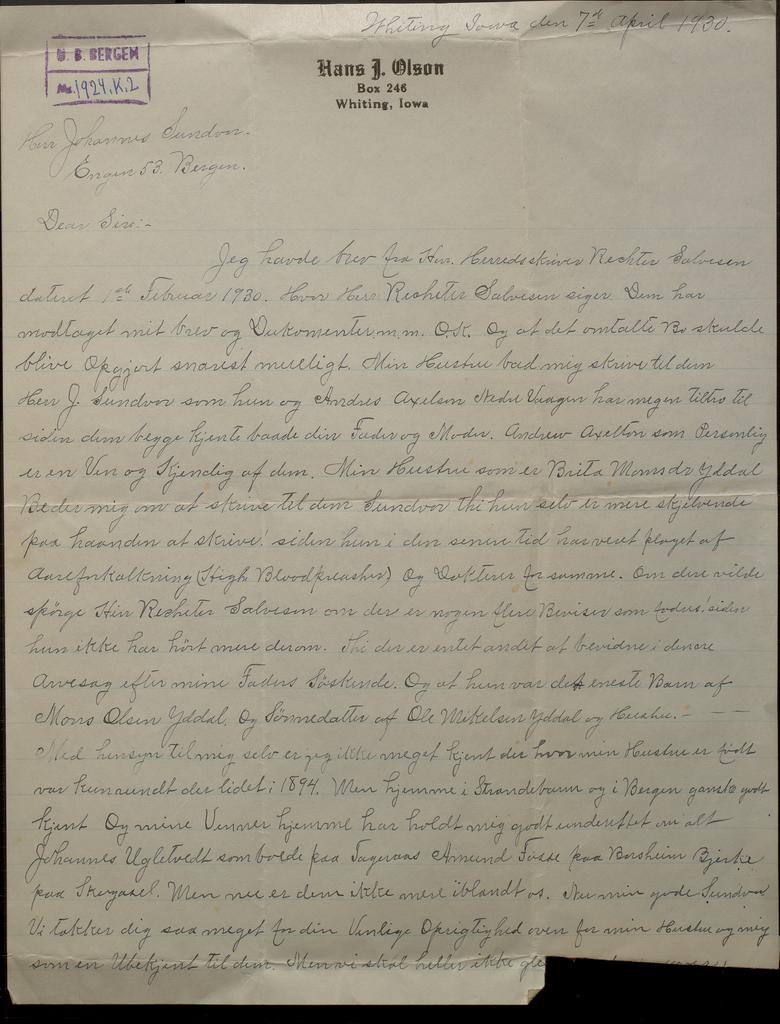 Whiting Iowa den 7de April 1930.
U. B. BERGEN
Ms. 1924, K. 2
Hans J. Olson
Box 246
Whiting, Iowa
Herr Johannes Sundvor.
Engen 53. Bergen.
Dear Sire:-
Jeg havde brev fra Herr. Herredsskriver Rechter Salvesen
dateret 1ste Februar 1930. Hvor Herr Recheter Salvesen siger Dem har
modtaget mit brev og Dukomenter m.m. O.K. Og at det omtalte Bo skulde
blive Opgjort snarest muelligt. Min Hustru bad mig skrive til dem
Herr J. Sundvor som hun og Andres Axelsen Nedre Vaagen har megen tiltro til
siden dem begge kjente baade din Fader og Moder. Andrew Axelton som Personlig
er en Ven og Kjendig af dem. Min Hustru som er Brita Monsdr Yddal
Beder mig om at skrive til dem Sundvor thi hun selv er mere skjelvende
paa haanden at skrive! siden hun i den senere tid har veret plaget af
Aareforkalkning (High Bloodpreasher) Og Dokterer for samme. Om dere vilde
spørge Herr Recheter Salvesen om der er nogen flere Beviser som siden
hun ikke har hört mere derom. Thi der er entet andet at bevidne i denne
Arvesag efter mine Faders Söskende. Og at hun var det eneste Barn af
Mons Olsen Yddal. Og Sönnedatter af Ole Mikelsen Yddal og Hustru. —
Med hensyn til mig selv er jeg ikke meget kjent der hvor min Hustru er födt
var kun rundt der lidet i 1894. Men hjemme i Strandebarm og i Bergen ganske godt
kjent Og mine Venner hjemme har holdt mig godt underettet om alt
Johannes Ugletvedt som boede paa Amund Fosse paa Borsheim Bjerke
paa Men nu er dem ikke mere iblandt os. Nu min gode Sundvor
Vi takker dig saa meget for din Venlige Oprigtighed over for min Hustru og mig
som en Ubekjent til dem. Men vi skal heller ikke